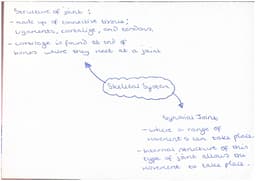 Structure of joint:
- made up of connective tissue;
ligaments, cartalige, and tendons.
- cartilage is found to end of
bones where they meet at a joint
Skeletal System
Synovial Joint
- where a range of
movements can take place.
- Internal structure of this
type of joint allows the
movement to take place.